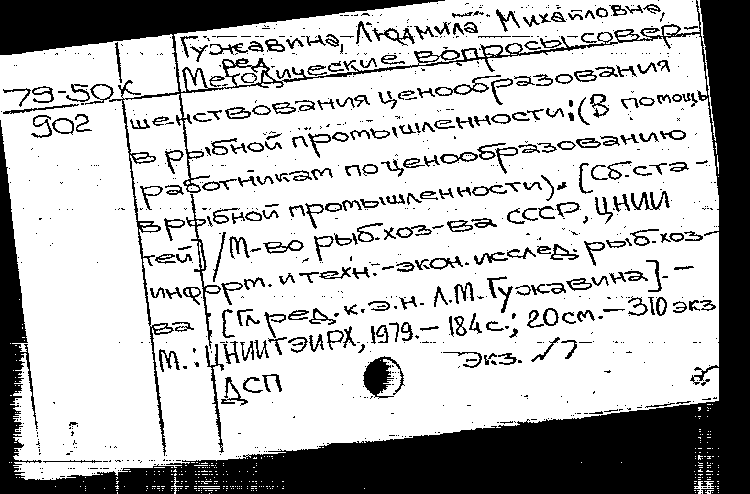 Гужавина, Людмила Михайловна,
ред.
79-50к Методические вопросы совер-
902 шенствования ценообразования
в рыбной промышленности: (В помощь
работникам по ценообразованию
в рыбной промышленности). [Сб. ста-
тей] / М-во рыб. хоз-ва СССР, ЦНИИ
информ. и техн.-экон. исслед. рыб. хоз-
ва ; [Гл. ред. к. э. н. Л.М. Гужавина]. –
М. : ЦНИИТЭИРХ, 1979. – 184 с. ; 20 см. – 310 экз
ДСП Экз. №